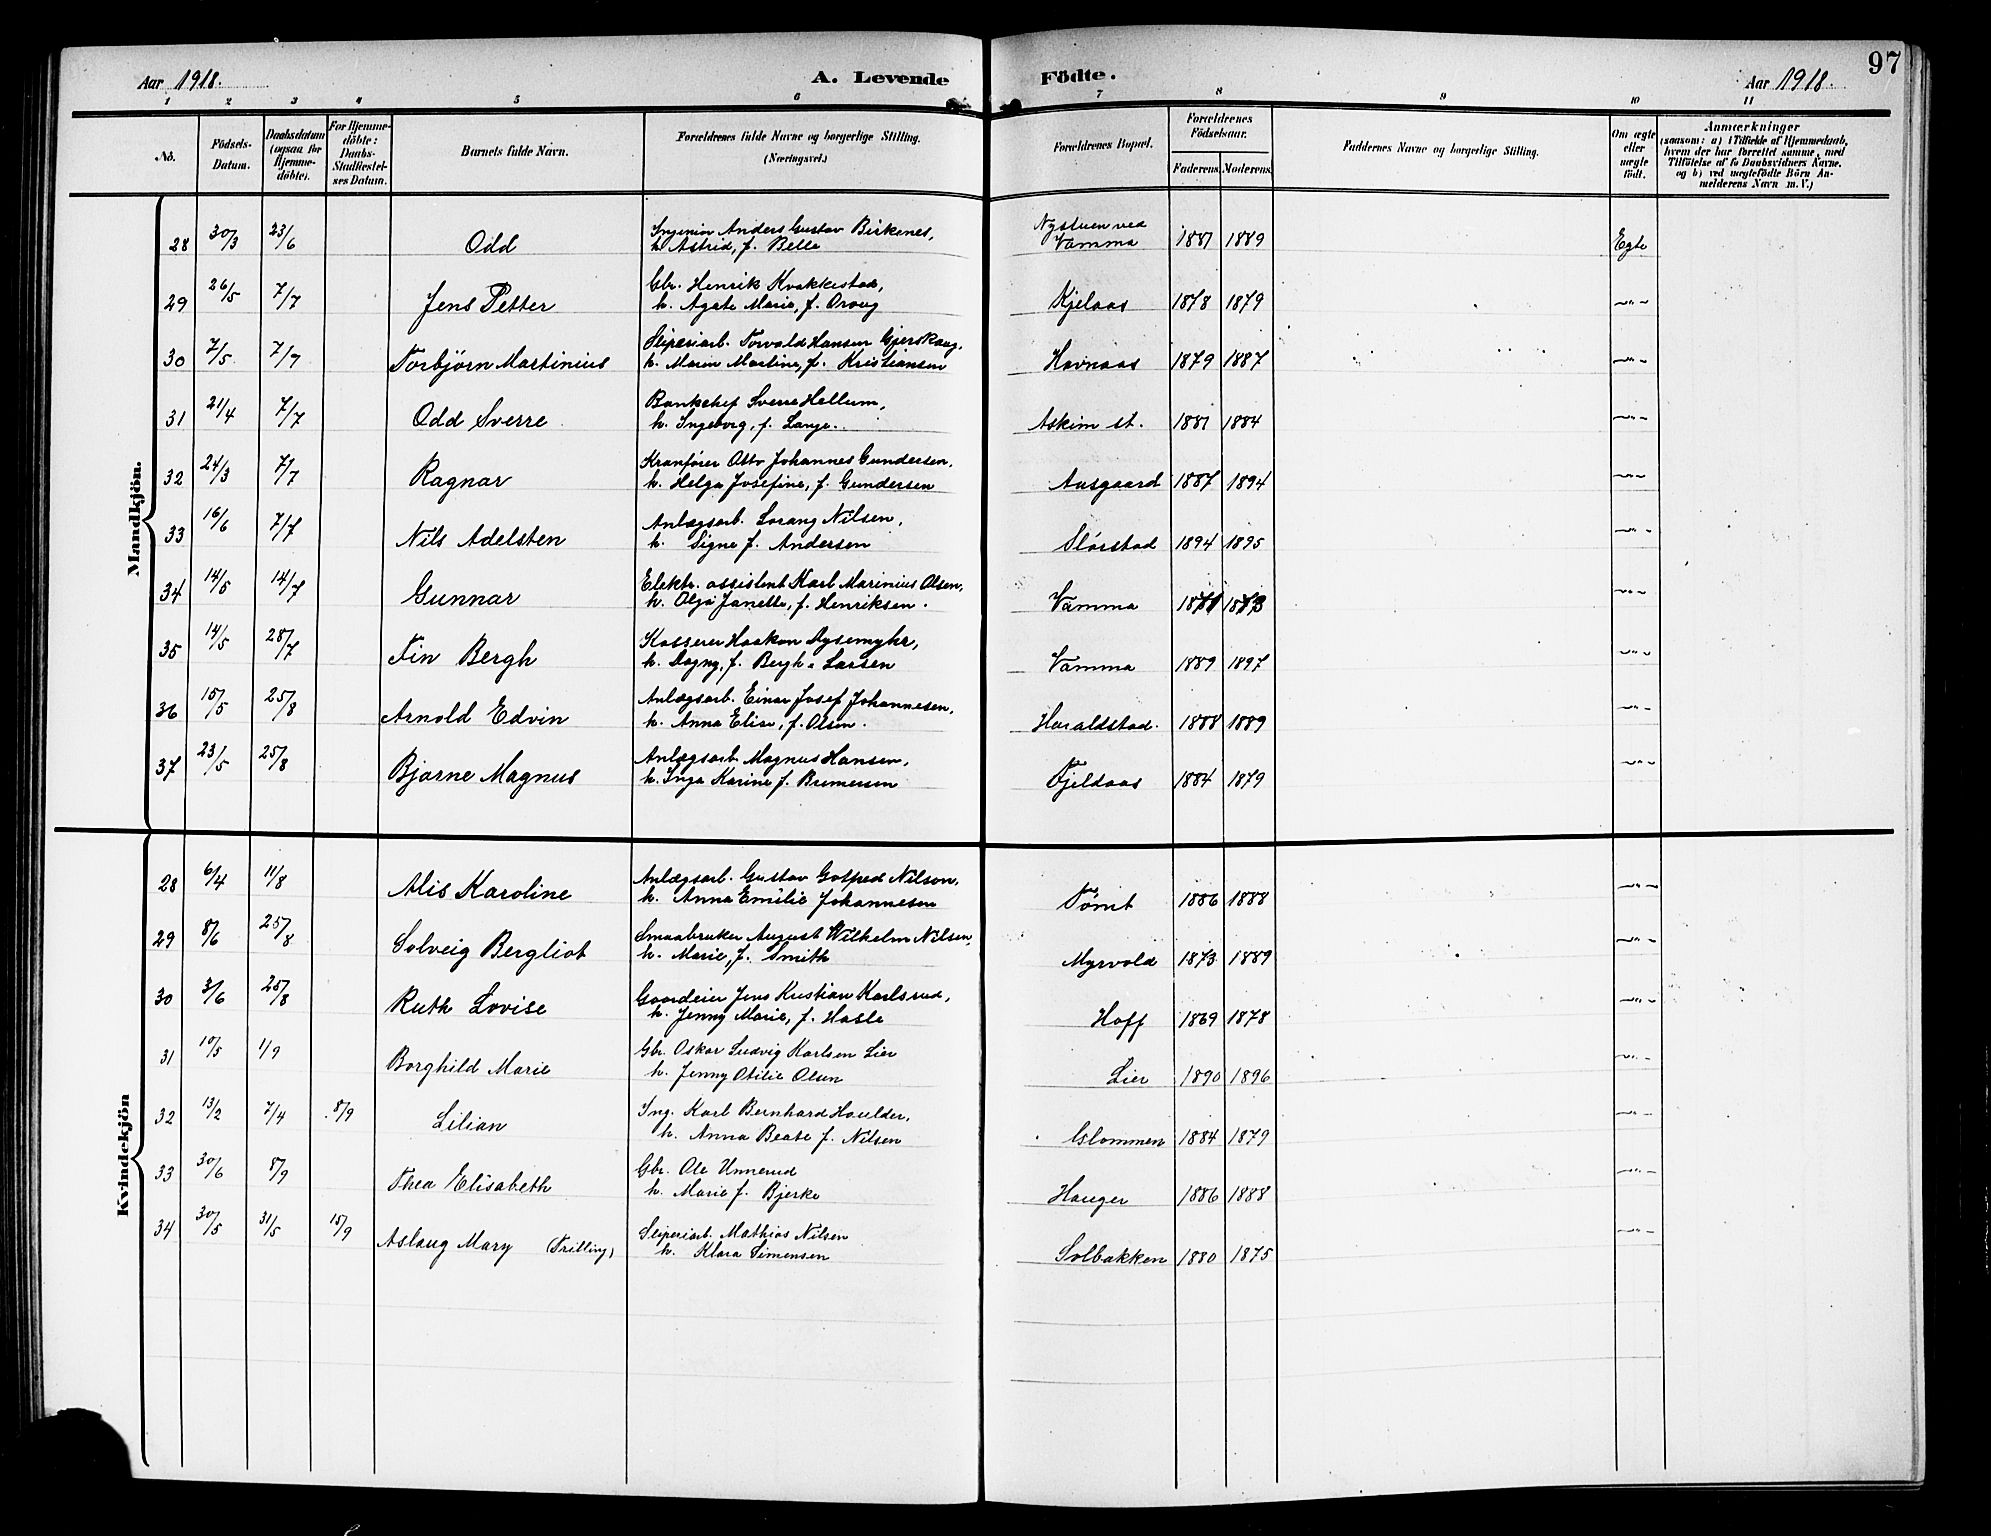 97
Aar 1918.
A. Levende Födte.
Aar 1918.
1 2 3 4 5 6 7 8 9 10 11
No.
Födsels-Datum.
Daabsdatum (ogsaa for Hjemme-döbte).
For Hjemme-döbte: Daabs-Stadfæstel-ses Datum.
Barnets fulde Navn.
Forældrenes fulde Navne og borgerlige Stilling. (Næringsvei.)
Forældrenes Bopæl.
Forældrenes Födselsaar.
Faderens. Moderens.
Faddernes Navne og borgerlige Stilling.
Om ægte eller uægte födt.
Anmærkninger (saasom: a) i Tilfælde af Hjemmedaab, hvem der har forrettet samme, med Tilföielse af to Daabsvidners Navne, og b) ved uægtefödte Börn An-melderens Navn m. V.)
Mandkjön.
28 30/3 23/6 Odd Ingeniør Anders Gustav Birkenes, Nystuen ved
h. Astrid, f. Belle Vamma 1881 1889 Egte
29 26/5 7/7 Jens Petter Gbr. Henrik Kvakkestad,
h. Agate Marie, f. Oraug Kjelaas 1878 1879 —"—
30 7/5 7/7 Torbjørn Martinius Sliperiarb. Torvald Hansen Gjerskaug,
h. Maren Martine, f. Kristiansen Havnaas 1879 1887 —"—
31 21/4 7/7 Odd Sverre Bankchef Sverre Hellum,
h. Ingeborg, f. Lange. Askim st. 1881 1884 —"—
32 24/3 7/7 Ragnar Kranfører Otto Johannes Gundersen,
h. Helga Josefine, f. Gundersen Aasgaard 1887 1894 —"—
33 16/6 7/7 Nils Adelsten Anlægsarb. Lorang Nilsen,
h. Signe f. Andersen Slørstad 1894 1895 —"—
34 14/5 14/7 Gunnar Elektr. assistent Karl Marinius Olsen,
h. Olga Janette, f. Henriksen. Vamma —"—
35 14/5 28/7 Fin Bergh Kasserer Haakon Aysemyhr,
h. Dagny, f. Bergh-Larsen Vamma 1889 1897 —"—
36 15/5 25/8 Arnold Edvin Anlægsarb. Einar Josef Johannesen,
h. Anna Elise, f. Olsen. Haraldstad. 1888 1889 —"—
37 23/5 25/8 Bjarne Magnus Anlægsarb Magnus Hansen,
h. Inga Karine f. Bremersen Fjeldaas 1884 1879 —"—
Kvindekjön
28 6/4 11/8 Alis Karoline Anlægsarb. Gustav Gotfred Nilson,
h. Anna Emilie Johannesen Tømt 1886 1888 —"—
29 8/6 25/8 Solveig Bergliot Smaabruker August Wilhelm Nilsen,
h. Marie, f. Smith Myrvold 1873 1889 —"—
30 3/6 25/8 Ruth Lovise Gaardeier Jens Kristian Karlsrud,
h. Jenny Marie, f. Hasle Hoff 1869 1878 —"—
31 10/5 1/9 Borghild Marie Gbr. Oskar Ludvig Karlsen Lier
h. Jenny Otilie Olsen Lier 1890 1896 —"—
32 13/2 7/4 8/9 Lilian Ing. Karl Bernhard Haulder,
h. Anna Beate f. Nilsen Glommen 1884 1879 —"—
33 30/6 8/9 Thea Elisabeth Gbr. Ole Unnerud
h. Marie f. Bjerke Hauger 1886 1888 —"—
34 30/5 31/5 15/9 Aslaug Mary (Trilling) Sliperiarb. Mathias Nilsen
h. Klara Simensen Solbakken 1880 1875 —"—